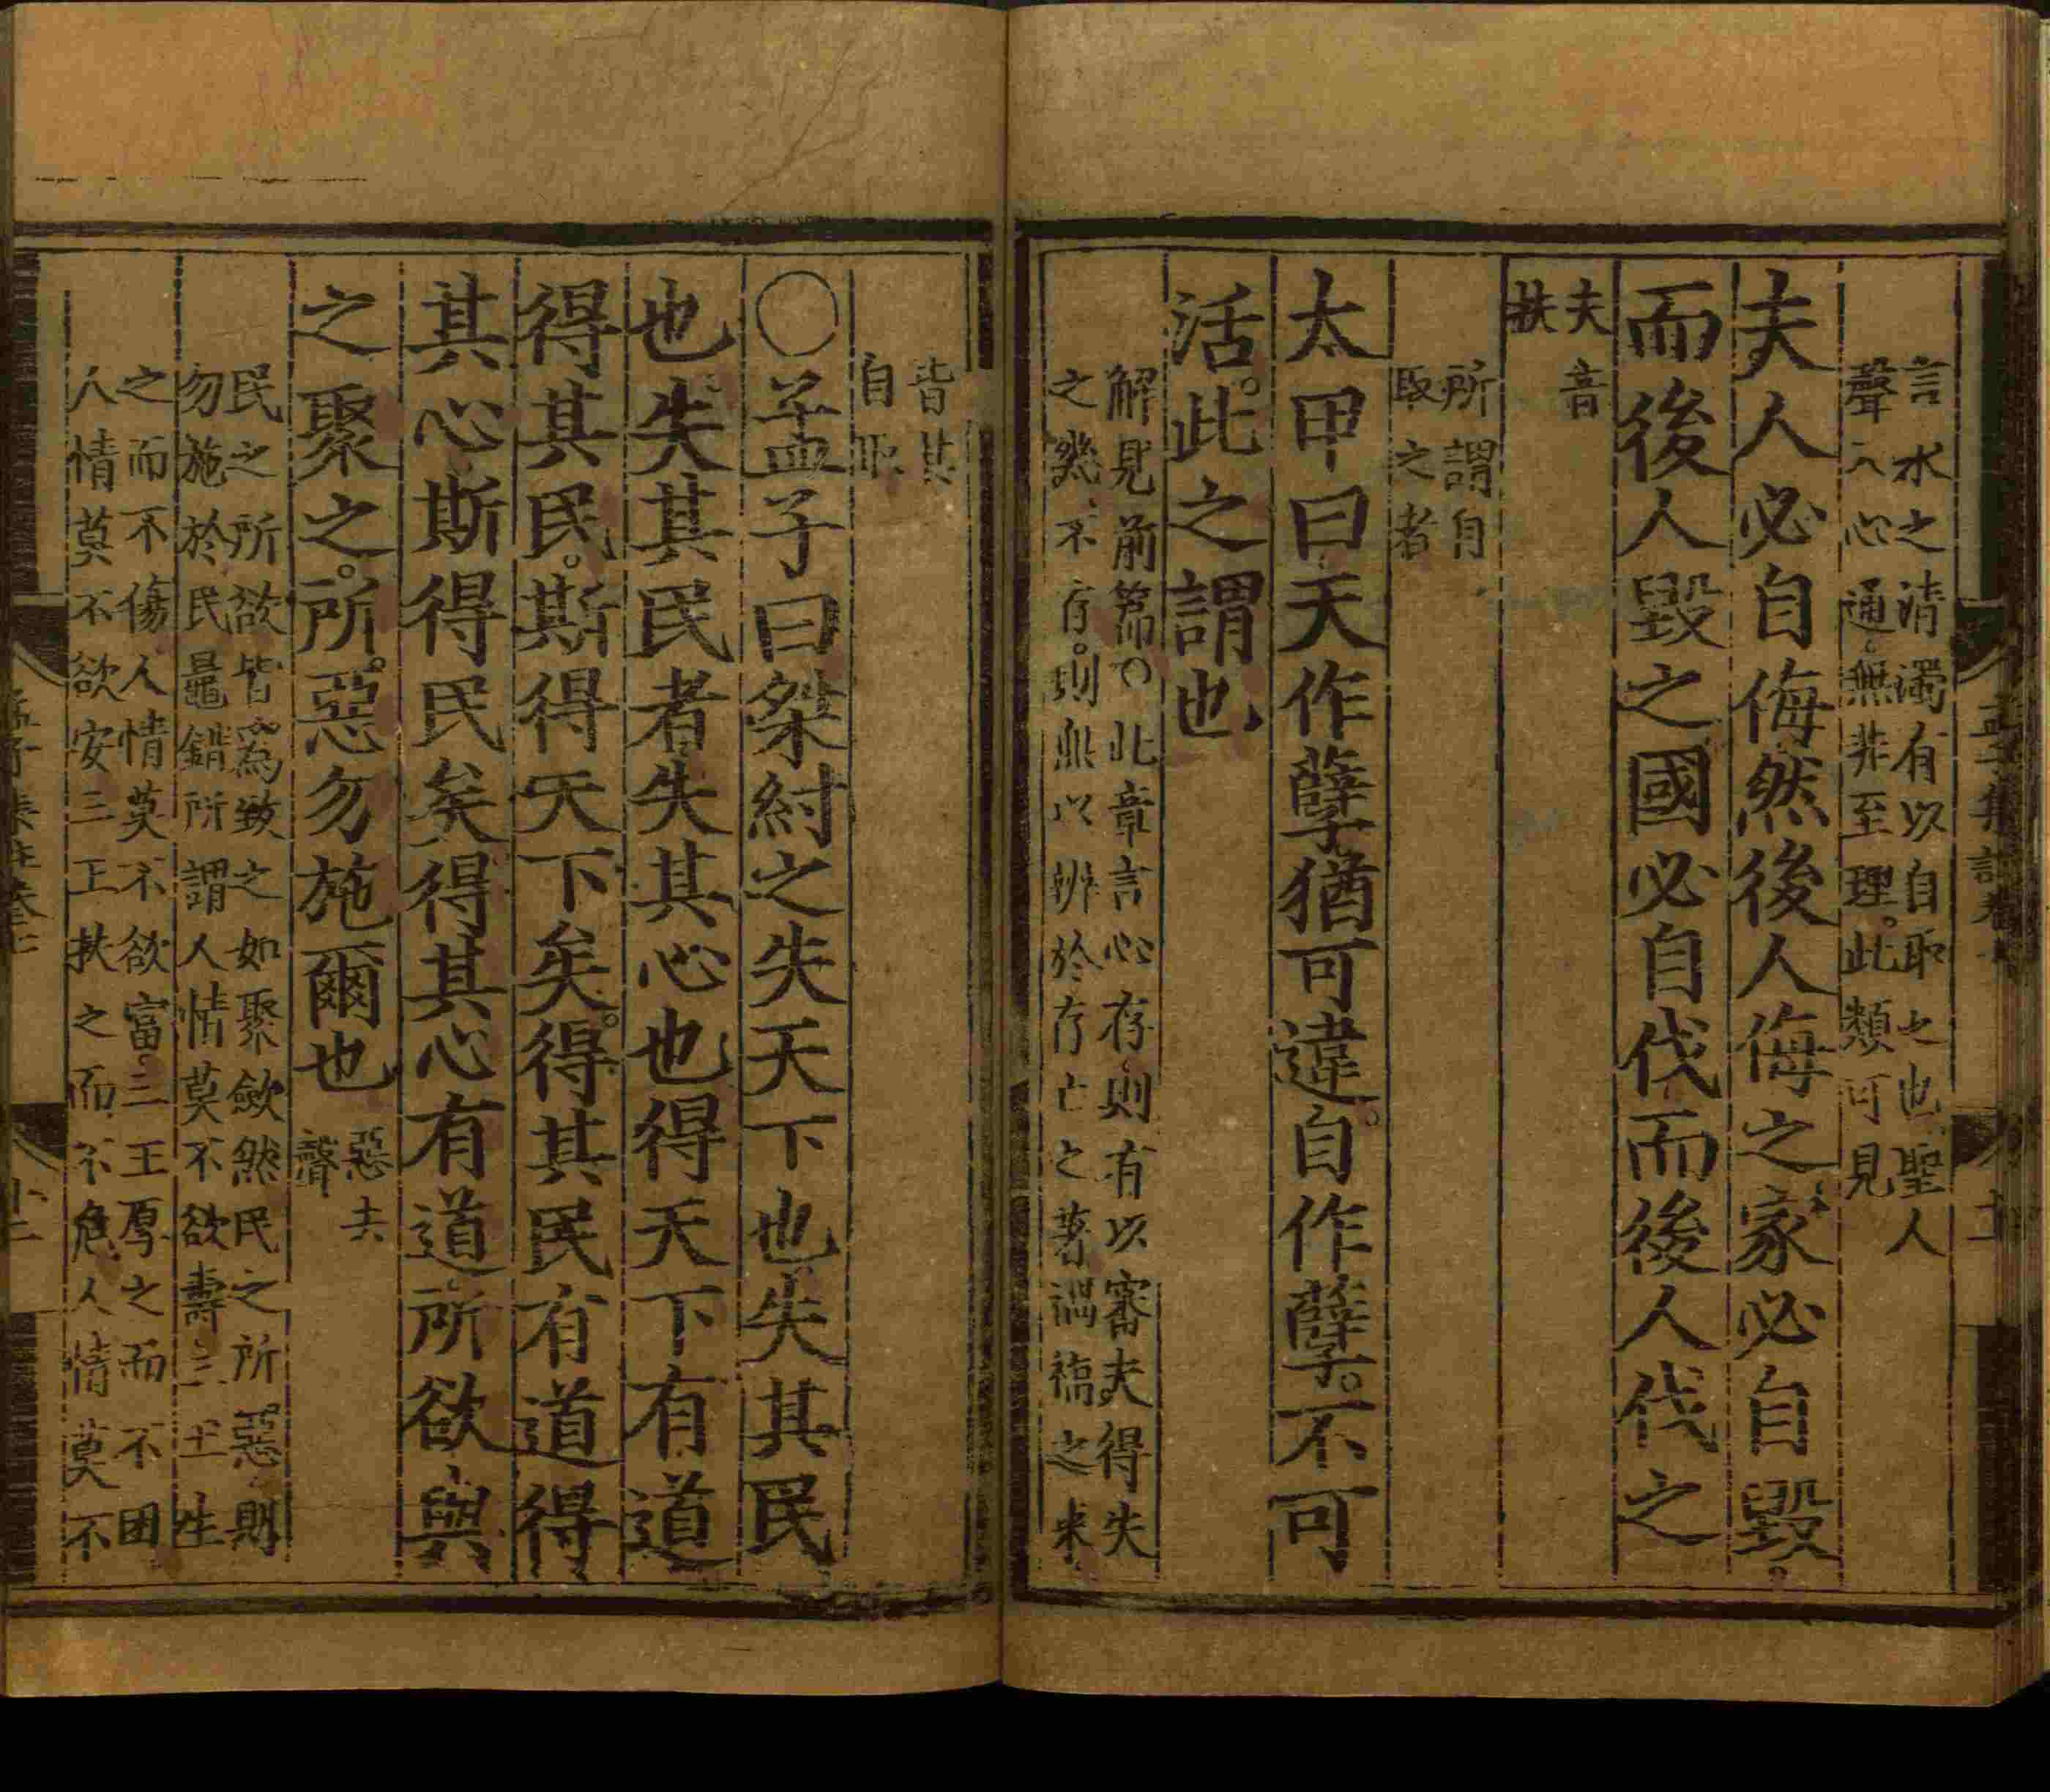 言水之清濁有以自取之也聖人
聲入心通無非至理此類可見
夫人必自侮然後人侮之家必自毀
而後人毀之國必自伐而後人伐之
夫音
扶
所謂自
取之者
太甲曰天作孽猶可違自作孽不可
活此之謂也
解見前篇○此章言心存則有以審夫得失
之幾不存則無以辨於存亡之著禍福之來
皆其
自取
○孟子曰桀紂之失天下也失其民
也失其民者失其心也得天下有道
得其民斯得天下矣得其民有道得
其心斯得民矣得其心有道所欲與
之聚之所惡勿施爾也
惡去
聲
民之所欲皆為致之如聚歛然民之所惡則
勿施於民鼂錯所謂人情莫不欲壽三王生
之而不傷人情莫不欲富三王厚之而不困
人情莫不欲安三王扶之而不危人情莫不